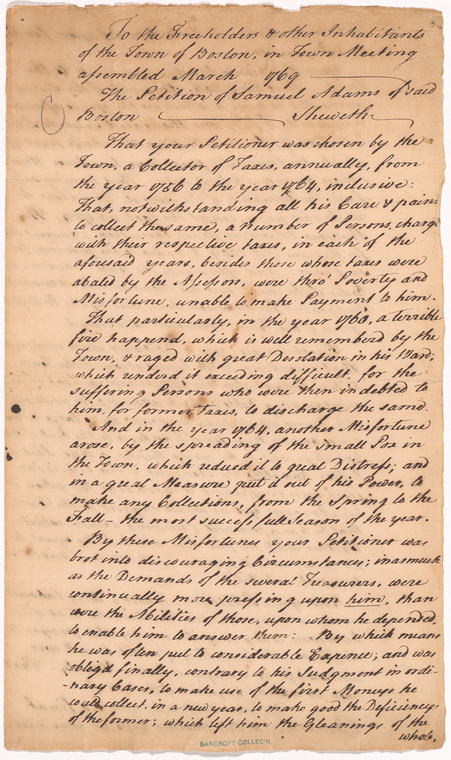 To the Freeholders & other Inhabitants
of the Town of Boston, in Town Meeting
assembled March 1769
The Petition of Samuel Adams of said
Boston Sheweth
That your Petitioner was chosen by the
Town, a Collector of Taxes, annually, from
the year 1756 to the year 1764, inclusive:
That, notwithstanding all his Care & pains
to collect the same, a number of Persons, charg'd
with their respective taxes, in each of the
aforesaid years, besides those whose taxes were
abated by the Assessors, were thro' Poverty and
Misfortune, unable to make Payment to him.
That particularly, in the year 1760, a terrible
fire happend, which is well rememberd by the
Town, & raged with great Desolation in his Ward;
which renderd it exceeding difficult, for the
suffering Persons who were then indebted to
him, for former Taxes, to discharge the same.
And in the year 1764, another Misfortune
arose, by the spreading of the Small Pox in
the Town, which reduced it to great Distress; and
in a great Measure put it out of his Power, to
make any Collections, from the Spring to the
Fall - the most successfull Season of the year.
By these Misfortunes your Petitioner was
brot into discouraging Circumstances; inasmuch
as the Demands of the several Treasurers, were
continually more pressing upon him, than
were the Abilities of those, upon whom he depended,
to enable him to answer them: By which means
he was often put to considerable Expence; and was
obliged finally, contrary to his Judgment in ordi-
-nary Cases, to make use of the first Moneys he
could collect, in a new year, to make good the Deficiency
of the former; which left him the Gleanings of the
whole,
BANCROFT COLLEC'N.